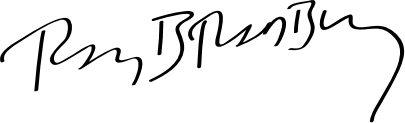 Ray Bradbury